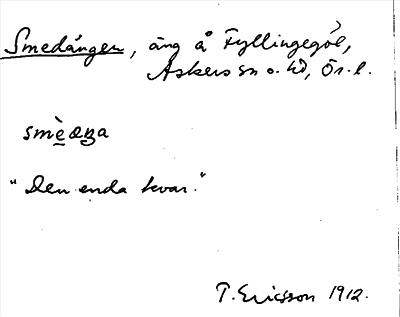 Smedängen, äng å Fyllingegöl,
Askers sn o. hd, Ör. l.
smè̱ dæŋa
"Den enda kvar."
T. Ericsson 1912.